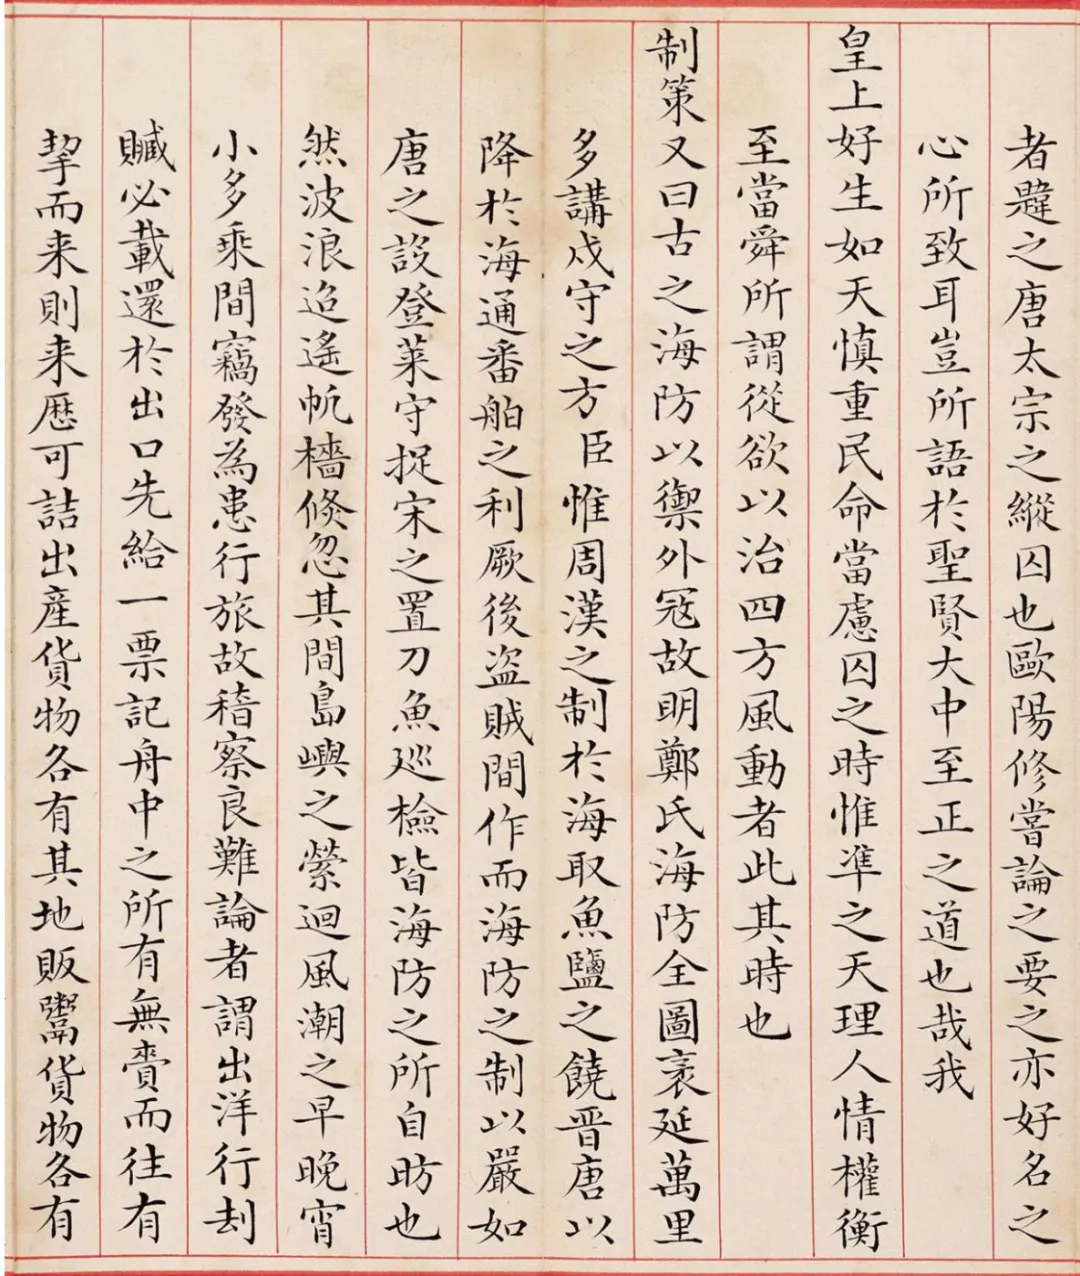 者韙之唐太宗之縱囚也歐陽修嘗論之要之亦好名之
心所致耳豈所語於聖賢大中至正之道也哉我
皇上好生如天慎重民命當慮囚之時惟準之天理人情權衡
至當舜所謂從欲以治四方風動者此其時也
制策又曰古之海防以禦外寇故明鄭氏海防全圖袤延萬里
多講戍守之方臣惟周漢之制於海取魚鹽之饒晉唐以
降於海通番舶之利厥後盜賊間作而海防之制以嚴如
唐之設登萊守捉宋之置刀魚巡檢皆海防之所自昉也
然波浪迢遙帆檣倏忽其間島嶼之縈迴風潮之早晚宵
小多乘間竊發為患行旅故稽察良難論者謂出洋行刦
贓必載還於出口先給一票記舟中之所有無賷而往有
挈而来則来歷可詰出產貨物各有其地販鬻貨物各有